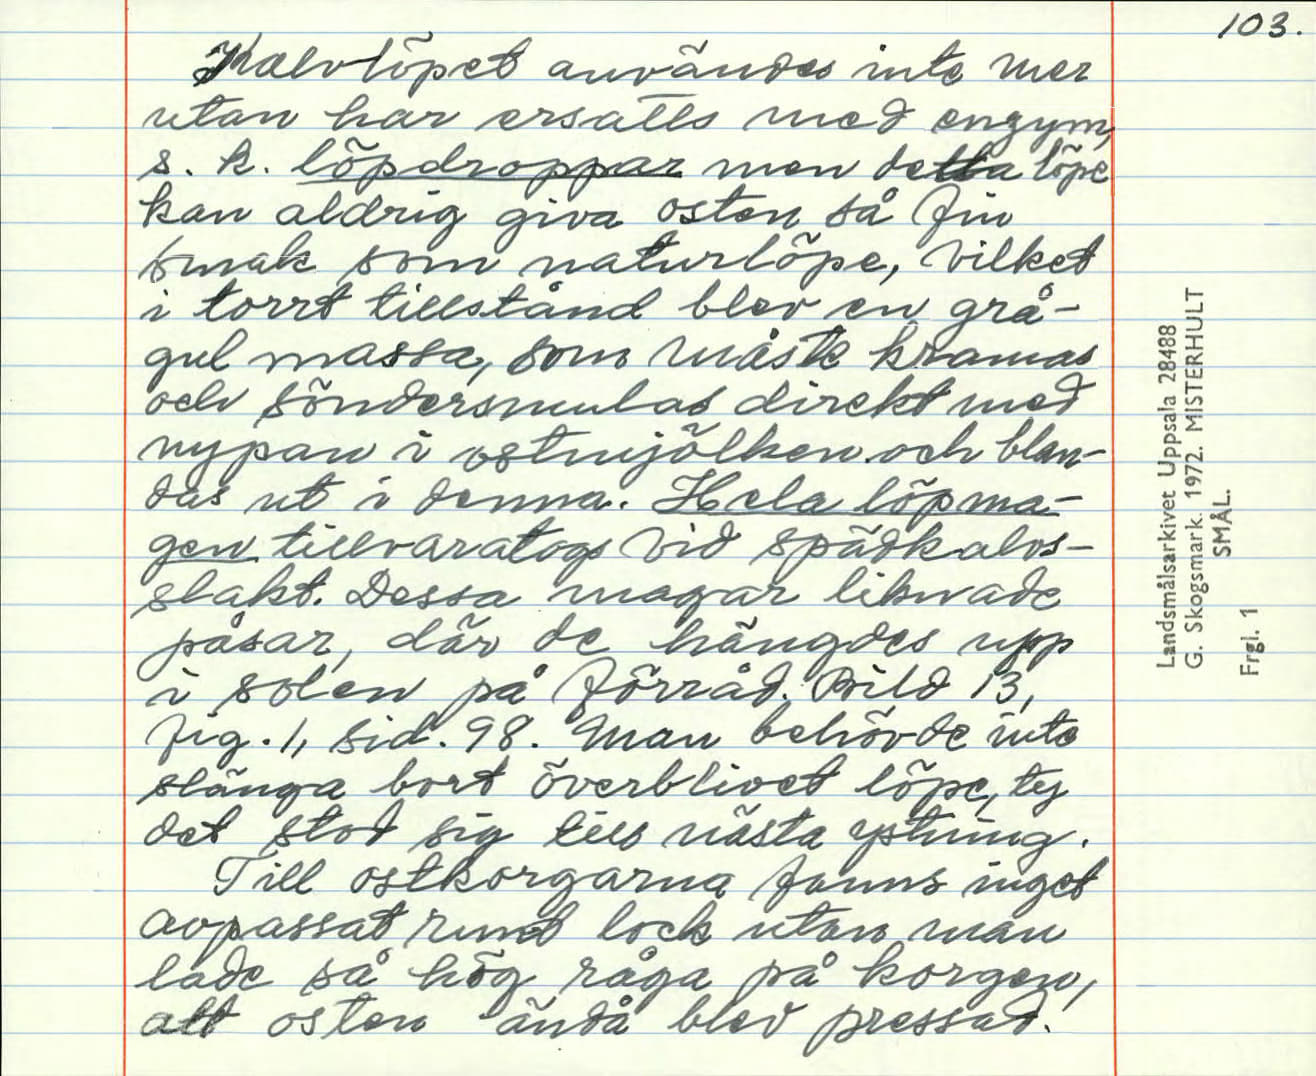 103.
Kalvlöpet användes inte mer
utan har ersatts med enzym,
s. k. löpdroppar men detta löpe
kan aldrig giva osten så fin
smak som naturlöpe, vilket
i torrt tillstånd blev en grå-
gul massa, som måste kramas
och söndersmulas direkt med
nypan i ostmjölken och blan-
das ut i denna. Hela löpma-
gen tillvaratogs vid spädkalvs-
slakt. Dessa magar liknade
påsar, där de hängdes upp
i solen på förråd. Bild 13,
fig. 1, sid. 98. Man behövde inte
slänga bort överblivet löpe, ty
det stod sig till nästa ystning.
Till ostkorgarna fanns inget
avpassat runt lock utan man
lade så hög råga på korgen,
att osten ändå blev pressad.
Landsmålsarkivet Uppsala 28488
G. Skogsmark. 1972. MISTERHULT
SMÅL.
Frgl. 1